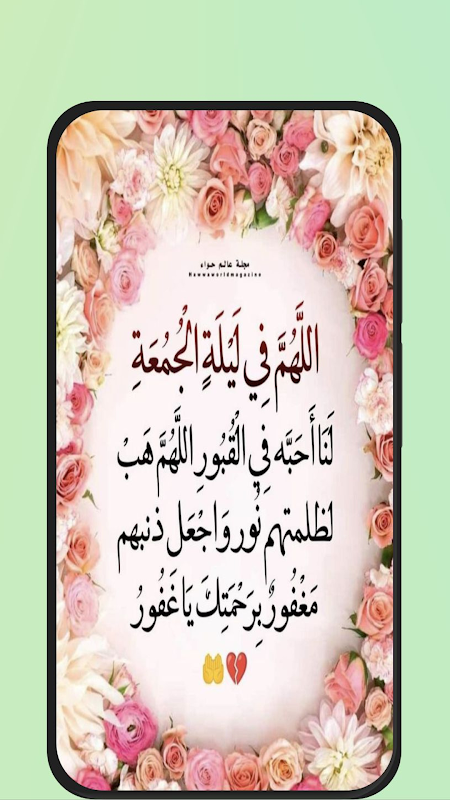 مجلة عالم حواء
Hawwaworldmagazine
اللَّهُمَّ فِي لَيْلَةِ الْجُمُعَةِ
لَنَا أَحَبَّه فِي الْقُبُورِ اللَّهُمَّ هَبْ
لظلمتهم نُور وَاجْعَل ذنبهم
مَغْفُورٌ بِرَحْمَتِكَ يَا غَفُورُ
🤲💔